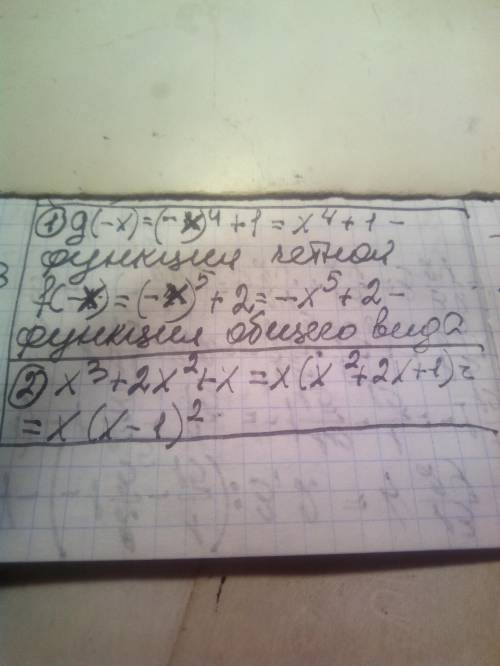 ① g(-x)=(-x)⁴+1=x⁴+1-
функция четной
f(-x)=(-x)⁵+2=-x⁵+2-
функция общего вида
② x³+2x²+x=x(x²+2x+1)=
=x(x-1)²